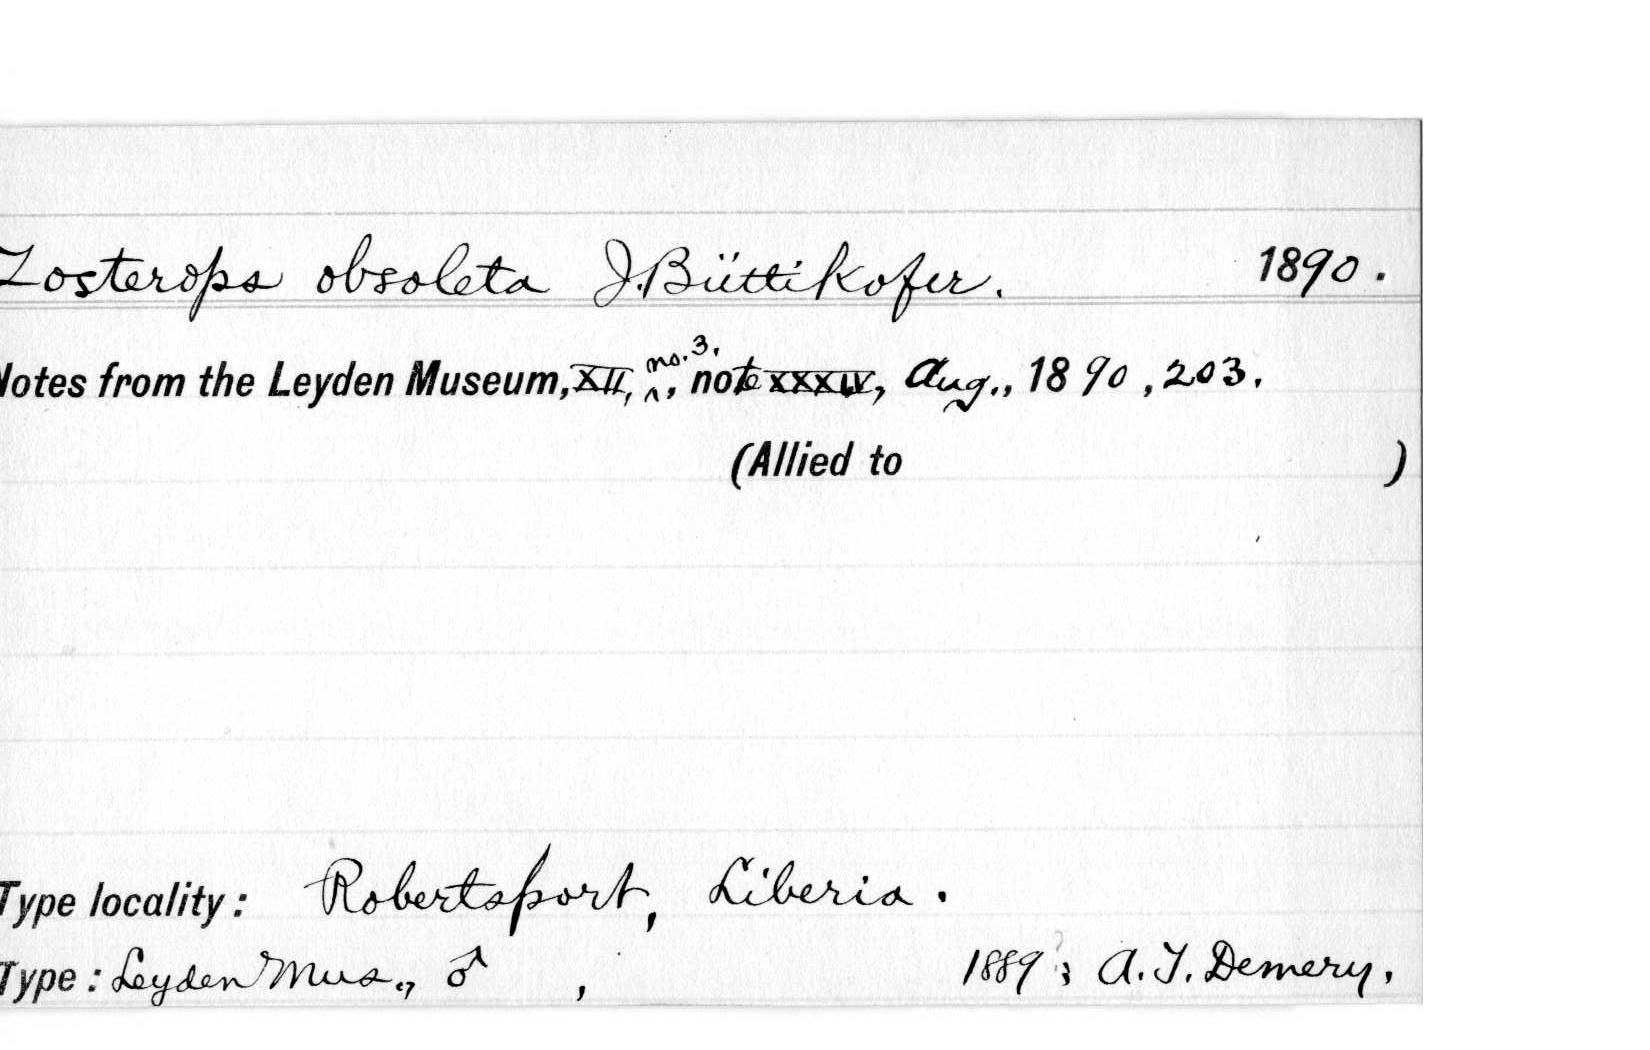 Zosterops obsoleta J. Büttikofer. 1890.
Notes from the Leyden Museum, XII, no. 3, note XXXIV, Aug., 1890, 203.
(Allied to )
Type locality: Robertsport, Liberia.
Type: Leyden Mus., ♂ , 1889?; A.T. Demery,